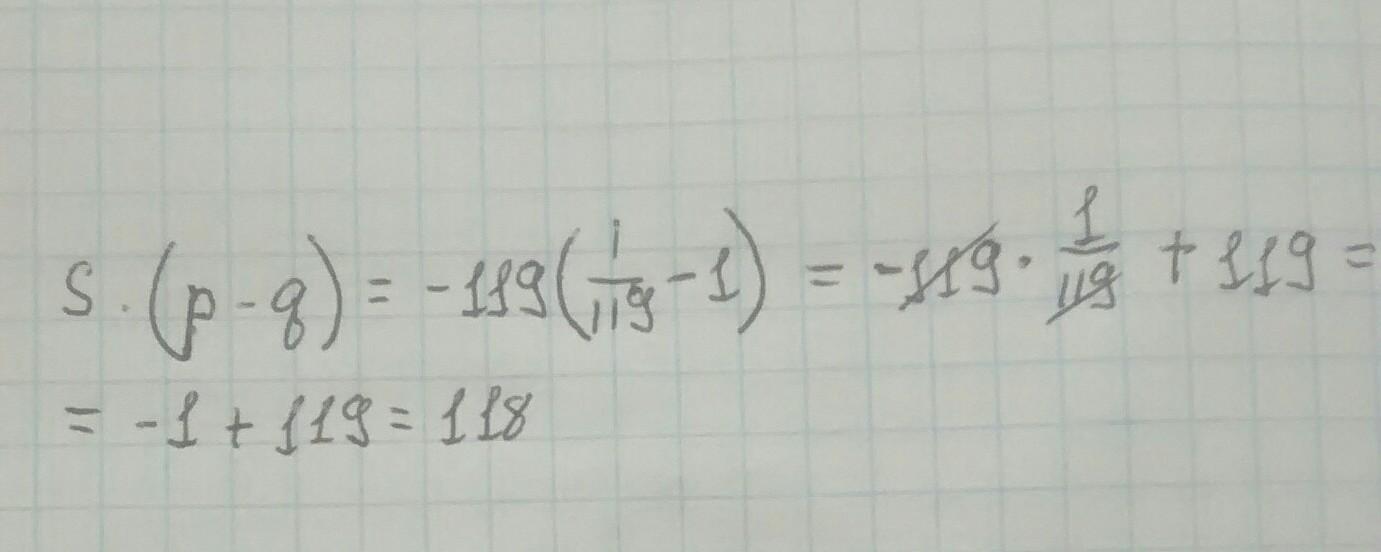 S · (p - q) = -119(1/119 - 1) = -119 · 1/119 + 119 =
= -1 + 119 = 118